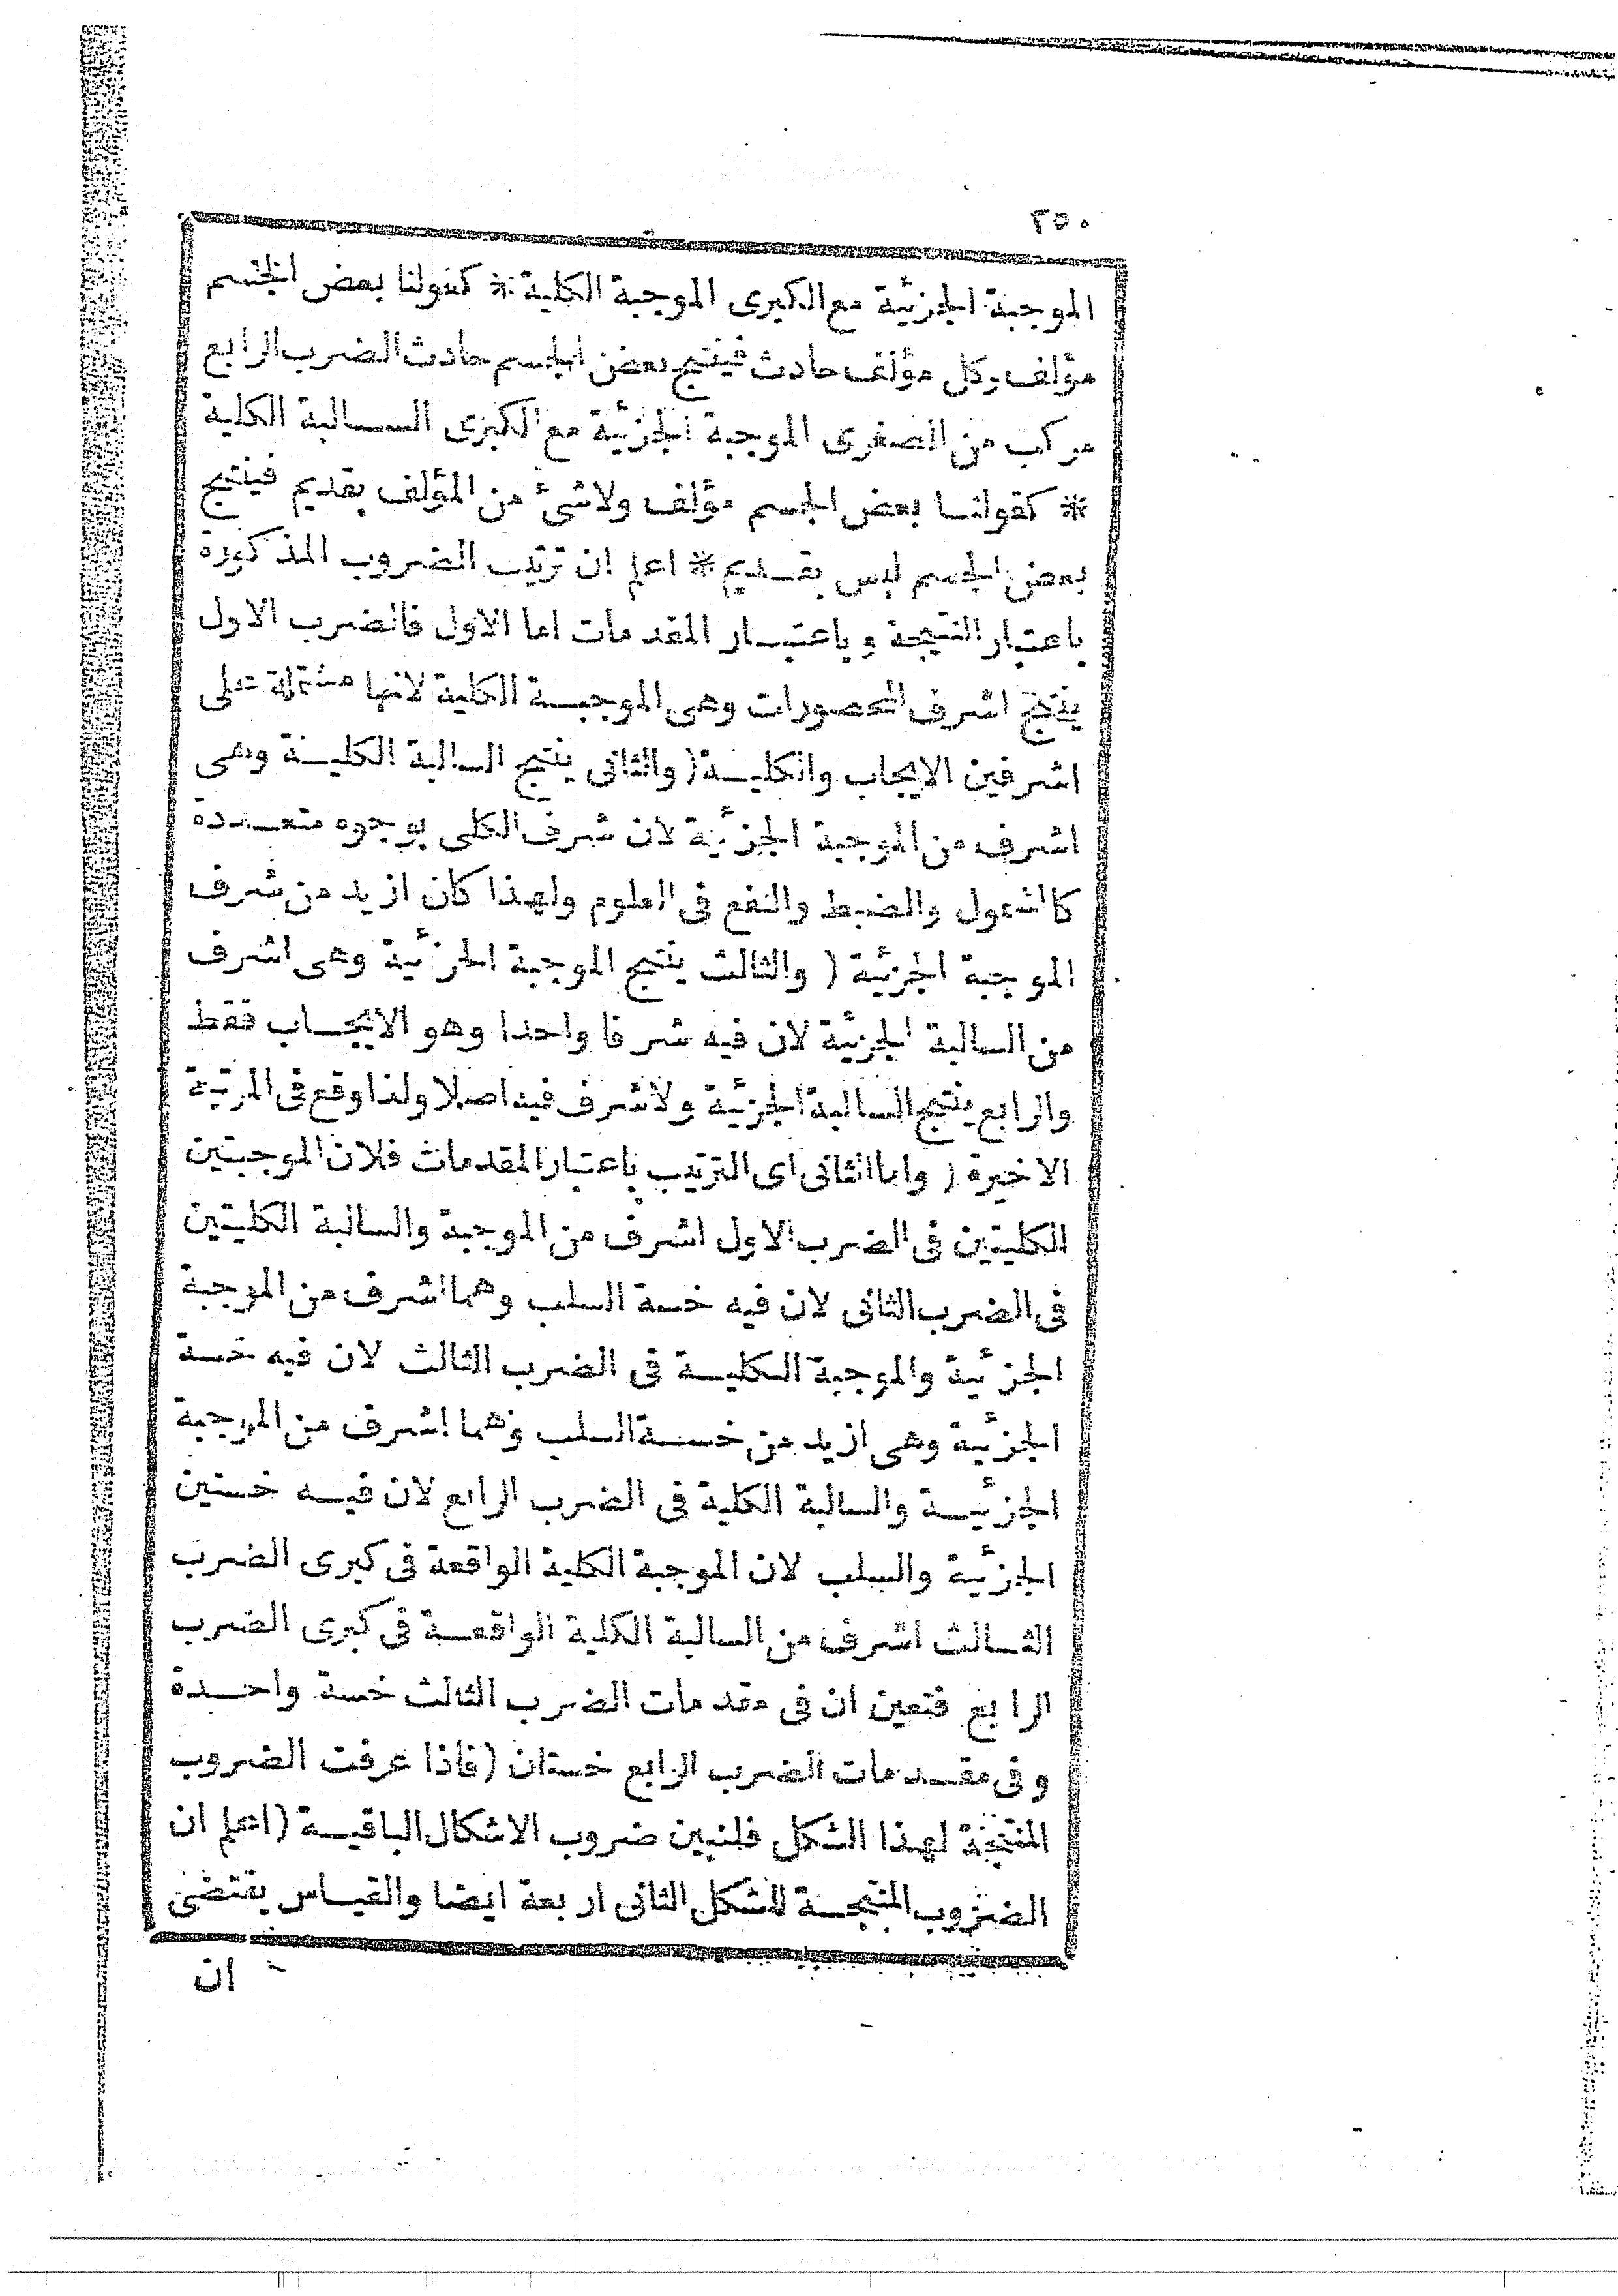 ٢٥٠
الموجبة الجزئية مع الكبرى الموجبة الكلية * كقولنا بعض الجسم
مؤلف وكل مؤلف حادث فينتج بعض الجسم حادث الضرب الرابع
مركب من الصغرى الموجبة الجزئية مع الكبرى السالبة الكلية
* كقولنا بعض الجسم مؤلف ولاشئ من المؤلف بقديم فينتج
بعض الجسم ليس بقديم * اعلم ان ترتيب الضروب المذكورة
باعتبار النتيجة وباعتبار المقدمات اما الاول فالضرب الاول
ينتج اشرف المحصورات وهى الموجبة الكلية لانها مشتملة على
اشرفين الايجاب والكلية (والثانى ينتج السالبة الكلية وهى
اشرف من الموجبة الجزئية لان شرف الكلى بوجوه متعددة
كالشمول والضبط والنفع فى العلوم ولهذا كان ازيد من شرف
الموجبة الجزئية (والثالث ينتج الموجبة الجزئية وهى اشرف
من السالبة الجزئية لان فيه شرفا واحدا وهو الايجاب فقط
والرابع ينتج السالبة الجزئية ولاشرف فيه اصلا ولذا وقع فى المرتبة
الاخيرة (واما الثانى اى الترتيب باعتبار المقدمات فلان الموجبتين
الكليتين فى الضرب الاول اشرف من الموجبة والسالبة الكليتين
فى الضرب الثانى لان فيه خسة السلب وهما اشرف من الموجبة
الجزئية والموجبة الكلية فى الضرب الثالث لان فيه خسة
الجزئية وهى ازيد من خسة السلب وهما اشرف من الموجبة
الجزئية والسالبة الكلية فى الضرب الرابع لان فيه خستين
الجزئية والسلب لان الموجبة الكلية الواقعة فى كبرى الضرب
الثالث اشرف من السالبة الكلية الواقعة فى كبرى الضرب
الرابع فتعين ان فى مقدمات الضرب الثالث خسة واحدة
وفى مقدمات الضرب الرابع خستان (فاذا عرفت الضروب
المنتجة لهذا الشكل فلنبين ضروب الاشكال الباقية (اعلم ان
الضروب المنتجة للشكل الثانى اربعة ايضا والقياس يقتضى
ان